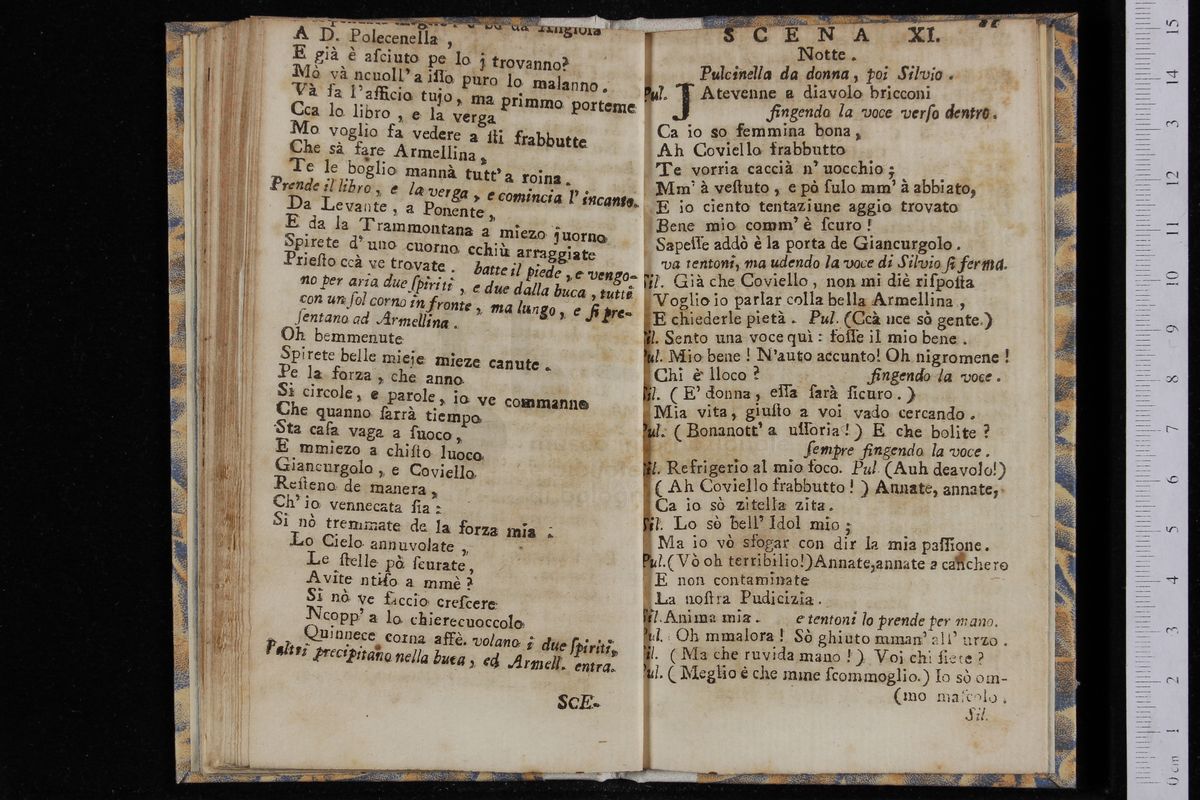 A D. Polecenella,
E già è aſciuto pe lo j trovanno?
Mò và ncuoll' a iſſo puro lo malanno.
Và fa l'afficio tujo, ma primmo porteme
Cca lo libro, e la verga
Mo voglio fa vedere a ſti frabbutte
Che sà fare Armellina,
Te le boglio mannà tutt' a roina.
Prende il libro, e la verga, e comincia l' incanto.
Da Levante, a Ponente,
E da la Trammontana a miezo juorno
Spirete d' uno cuorno cchiù arraggiate
Prieſto ccà ve trovate. batte il piede, e vengo-
no per aria due ſpiriti, e due dalla buca, tutti
con un ſol corno in fronte, ma lungo, e ſi pre-
ſentano ad Armellina.
Oh bemmenute
Spirete belle mieje mieze canute.
Pe la forza, che anno
Si circole, e parole, io ve commanno
Che quanno ſarrà tiempo
Sta caſa vaga a fuoco,
E mmiezo a chiſto luoco
Giancurgolo, e Coviello
Reſteno de manera,
Ch' io vennecata ſia:
Si nò tremmate de la forza mia:
Lo Cielo annuvolate,
Le ſtelle pò ſcurate,
Avite ntiſo a mmè?
Si nò ve faccio creſcere
Ncopp' a lo chierecuoccolo
Quinnece corna affè. volano i due ſpiriti,
l'altri precipitano nella buca, ed Armell. entra.
SCE-
SCENA XI.
Notte.
Pulcinella da donna, poi Silvio.
Pul. JAtevenne a diavolo bricconi
fingendo la voce verſo dentro.
Ca io so femmina bona,
Ah Coviello frabbutto
Te vorria caccià n' uocchio;
Mm' à veſtuto, e pò ſulo mm' à abbiato,
E io ciento tentaziune aggio trovato
Bene mio comm' è ſcuro!
Sapeſſe addò è la porta de Giancurgolo.
va tentoni, ma udendo la voce di Silvio ſi ferma.
Sil. Già che Coviello, non mi diè riſpoſta
Voglio io parlar colla bella Armellina,
E chiederle pietà. Pul. (Ccà nce sò gente.)
Sil. Sento una voce quì: foſſe il mio bene.
Pul. Mio bene! N'auto accunto! Oh nigromene!
Chi è lloco? fingendo la voce.
Sil. (E' donna, eſſa ſarà ſicuro.)
Mia vita, giuſto a voi vado cercando.
Pul. (Bonanott' a uſſoria!) E che bolite?
ſempre fingendo la voce.
Sil. Refrigerio al mio foco. Pul. (Auh deavolo!)
(Ah Coviello frabbutto!) Annate, annate,
Ca io sò zitella zita.
Sil. Lo sò bell' Idol mio;
Ma io vò sfogar con dir la mia paſſione.
Pul. (Vò oh terribilio!) Annate,annate a canchero
E non contaminate
La noſtra Pudicizia.
Sil. Anima mia. e tentoni lo prende per mano.
Pul. Oh mmalora! Sò ghiuto mman' all' urzo.
Sil. (Ma che ruvida mano!) Voi chi ſiete?
Pul. (Meglio è che mme ſcommoglio.) Io sò om-
(mo maſcolo.
Sil.